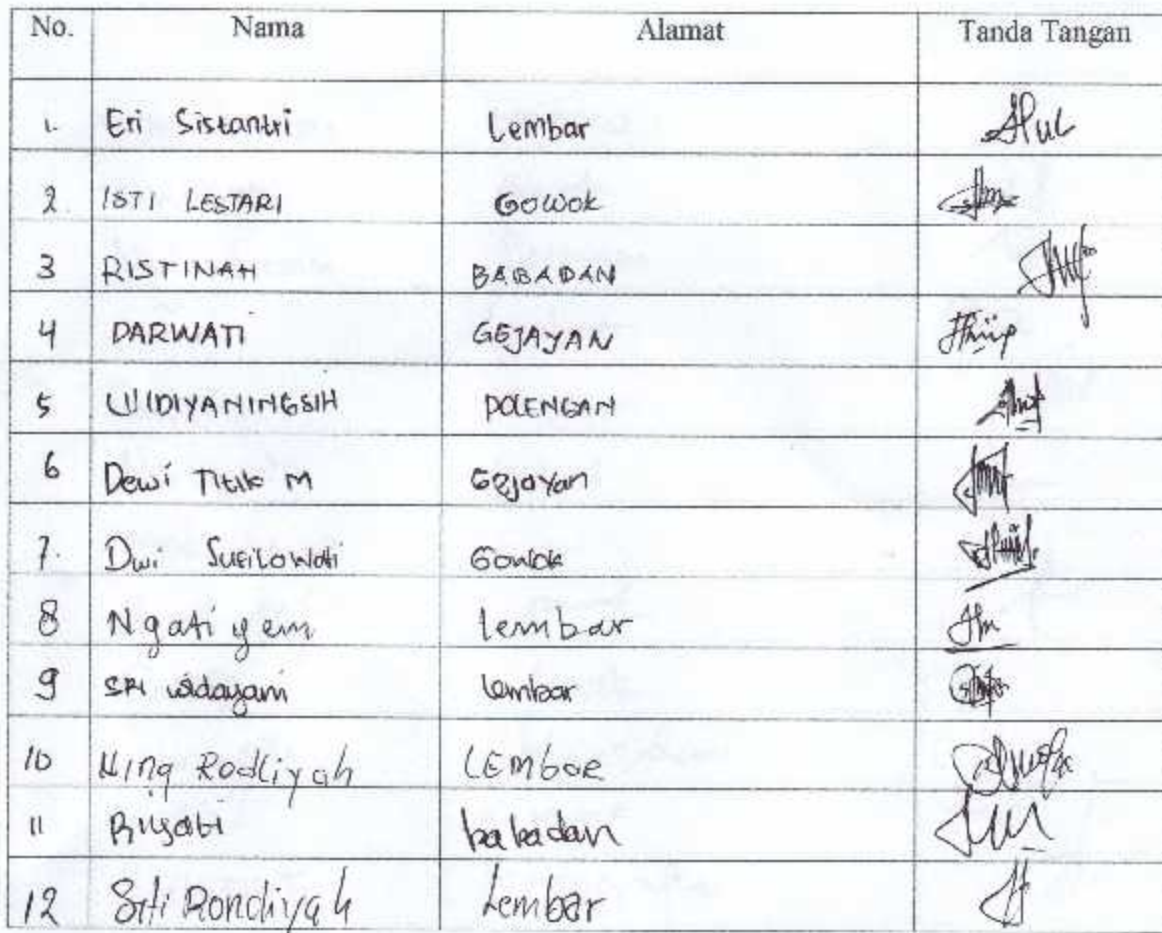 No. Nama Alamat Tanda Tangan
1. Eri Sistantri Lembar
2. ISTI LESTARI Gowok
3 RISTINAH BABADAN
4 DARWATI GEJAYAN
5 WIDIYANINGSIH DOLENGAN
6 Dewi Titik M Gejayan
7. Dwi Susilowati Gowok
8 Ngatiyem lembar
9 SRI widayani lembar
10 Rodliyah LEMBAR
11 Riyati babadan
12 Siti Rondiyah Lembar